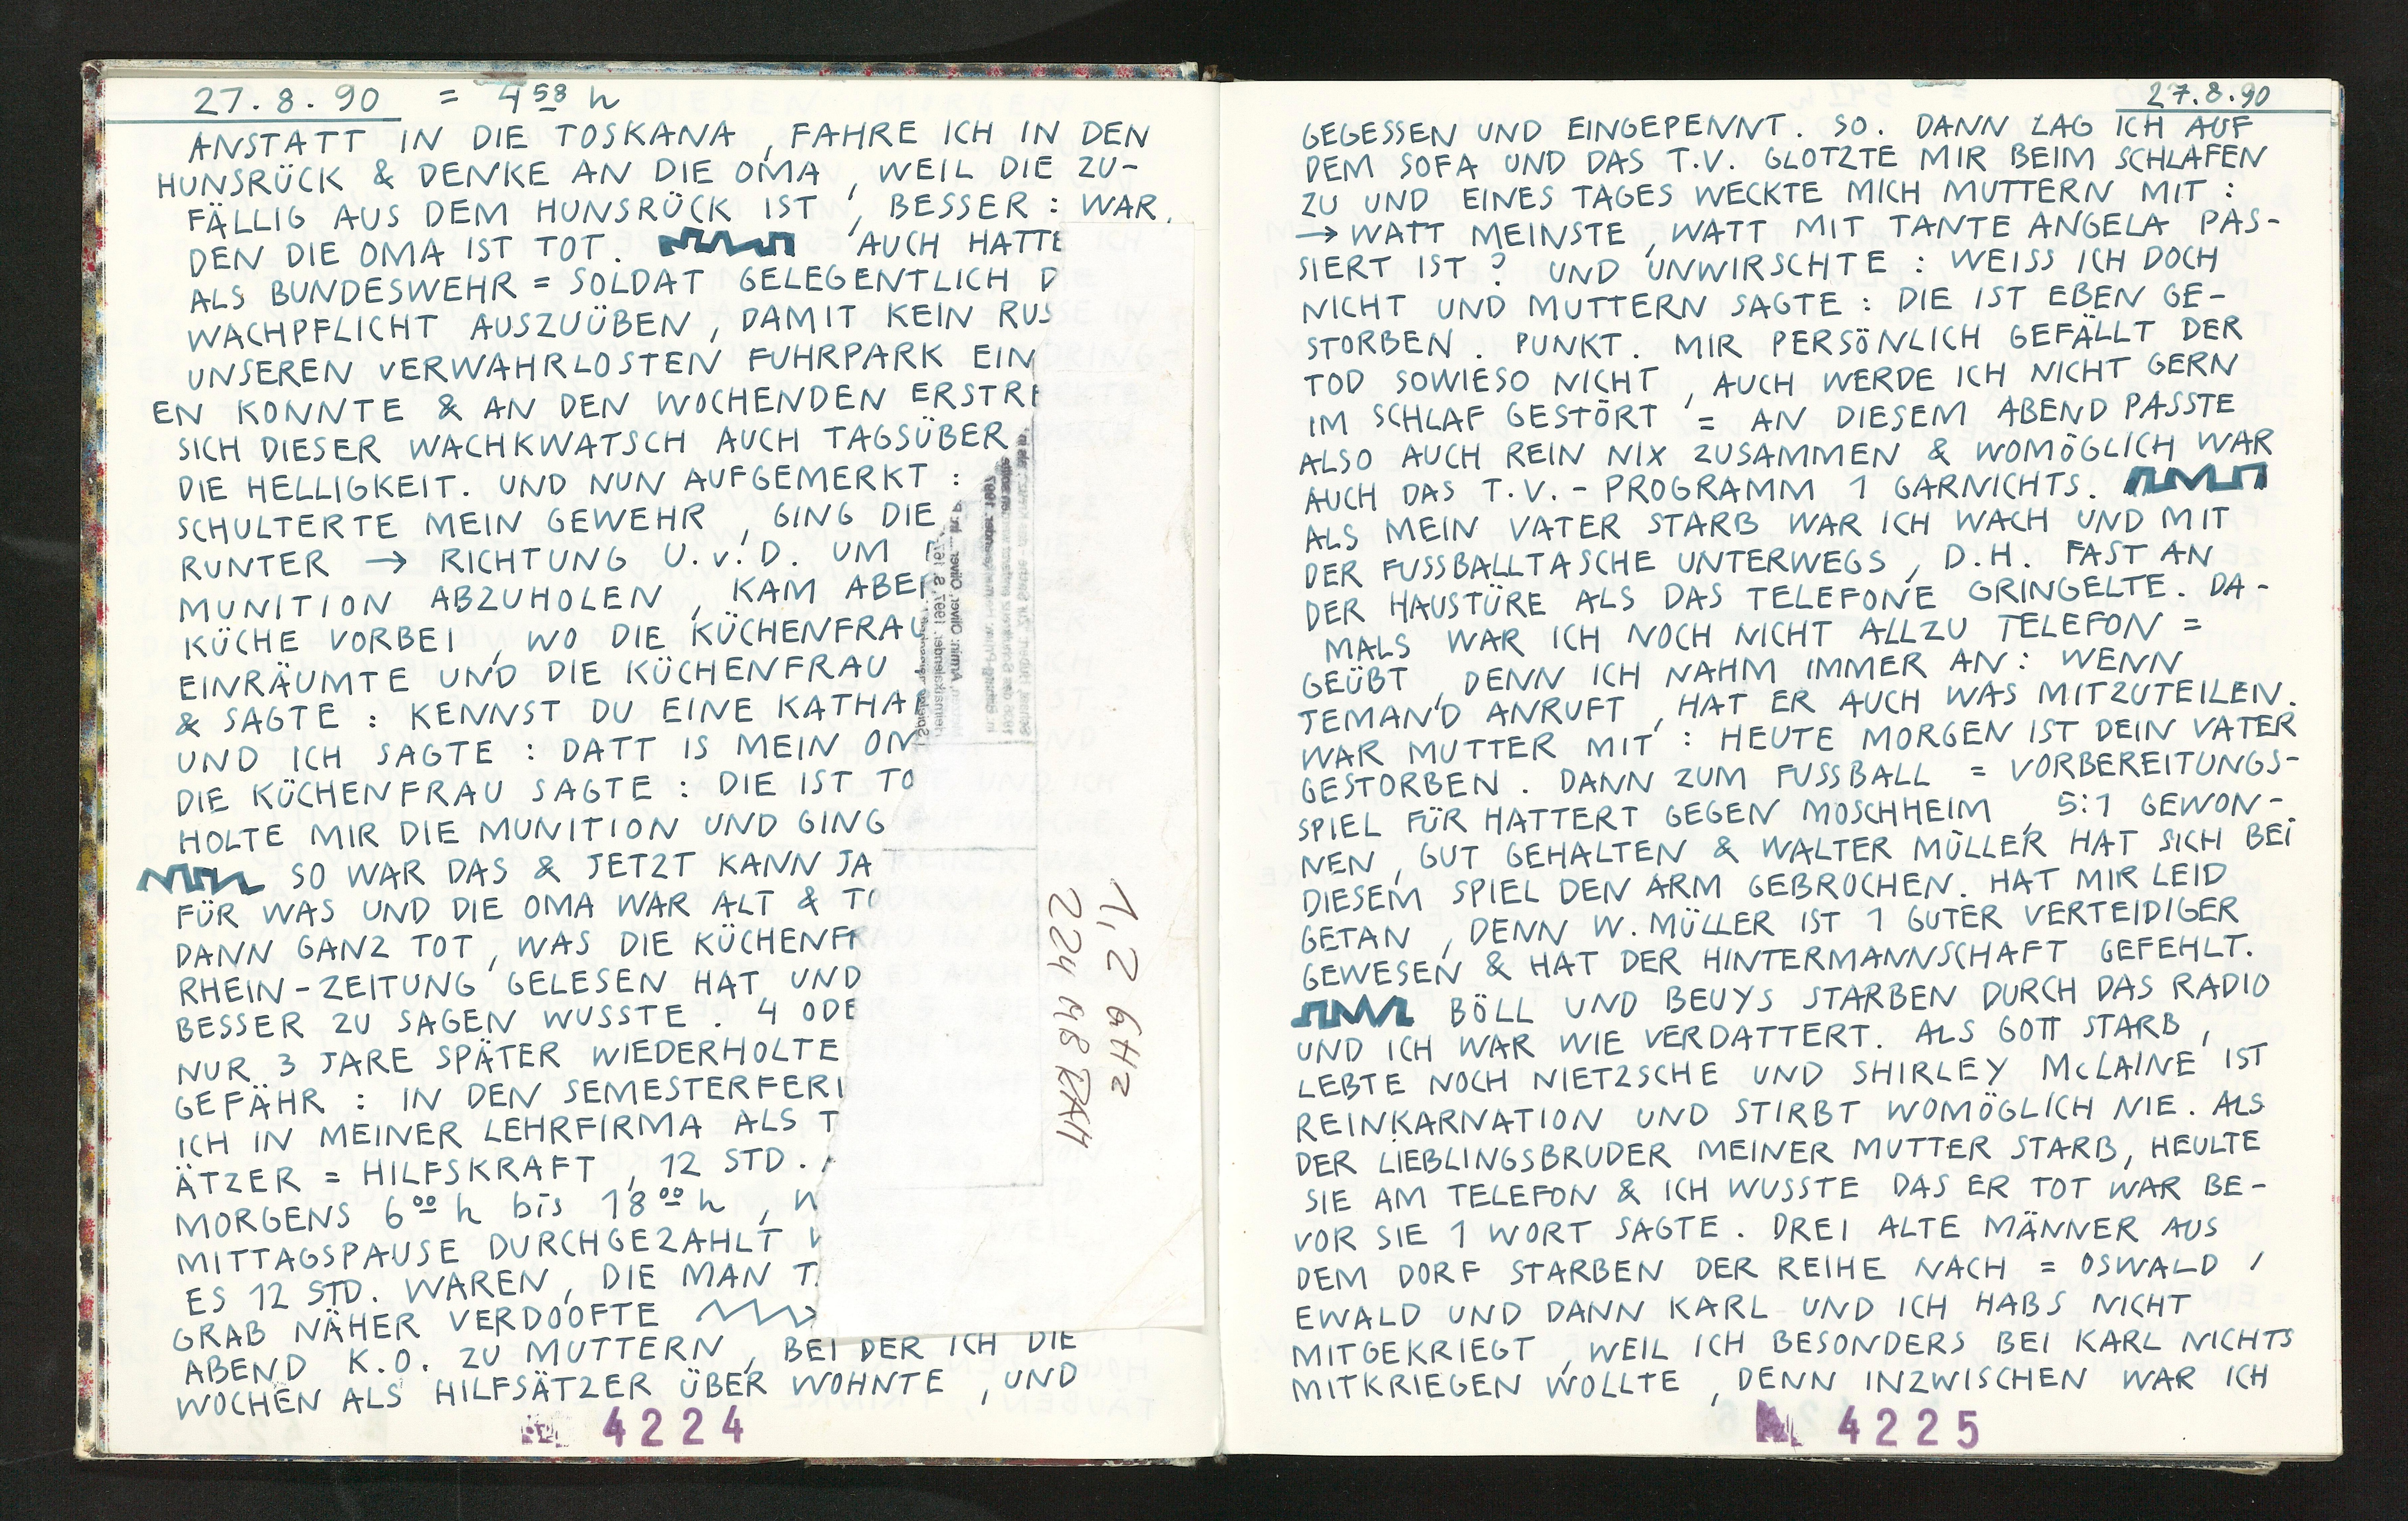 27.8.90 = 4 58 h
ANSTATT IN DIE TOSKANA, FAHRE ICH IN DEN
HUNSRÜCK & DENKE AN DIE OMA, WEIL DIE ZU-
FÄLLIG AUS DEM HUNSRÜCK IST, BESSER: WAR,
DEN DIE OMA IST TOT. AUCH HATTE
ALS BUNDESWEHR = SOLDAT GELEGENTLICH D
WACHPFLICHT AUSZUÜBEN, DAMIT KEIN RUS
UNSEREN VERWAHRLOSTEN FUHRPARK EIN
EN KONNTE & AN DEN WOCHENDEN ERSTRE
SICH DIESER WACHKWATSCH AUCH TAGSÜBER
DIE HELLIGKEIT. UND NUN AUFGEMERKT:
SCHULTERTE MEIN GEWEHR, GING DIE
RUNTER → RICHTUNG U.v.D. UM
MUNITION ABZUHOLEN, KAM ABER
KÜCHE VORBEI, WO DIE KÜCHENFRAU
EINRÄUMTE UND DIE KÜCHENFRAU
& SAGTE: KENNST DU EINE KATHA
UND ICH SAGTE: DATT IS MEIN OM
DIE KÜCHENFRAU SAGTE: DIE IST TO
HOLTE MIR DIE MUNITION UND GING
SO WAR DAS & JETZT KANN JA
FÜR WAS UND DIE OMA WAR ALT & TO
DANN GANZ TOT, WAS DIE KÜCHENFR
RHEIN-ZEITUNG GELESEN HAT UND
BESSER ZU SAGEN WUSSTE. 4 ODE
NUR 3 JARE SPÄTER WIEDERHOLTE
GEFÄHR: IN DEN SEMESTERFERI
ICH IN MEINER LEHRFIRMA ALS T
ÄTZER = HILFSKRAFT, 12 STD.
MORGENS 6 00 h bis 18 00 h,
MITTAGSPAUSE DURCHGEZAHLT
ES 12 STD. WAREN, DIE MAN T
GRAB NÄHER VERDOOFTE
ABEND K.O. ZU MUTTERN, BEI DER ICH DIE
WOCHEN ALS HILFSÄTZER ÜBER WOHNTE, UND
4224
1,2 GHz
224 MB RAM
27.8.90
GEGESSEN UND EINGEPENNT. SO. DANN LAG ICH AUF
DEM SOFA UND DAS T.V. GLOTZTE MIR BEIM SCHLAFEN
ZU UND EINES TAGES WECKTE MICH MUTTERN MIT:
→ WATT MEINSTE, WATT MIT TANTE ANGELA PAS-
SIERT IST? UND UNWIRSCHTE: WEISS ICH DOCH
NICHT UND MUTTERN SAGTE: DIE IST EBEN GE-
STORBEN. PUNKT. MIR PERSÖNLICH GEFÄLLT DER
TOD SOWIESO NICHT, AUCH WERDE ICH NICHT GERN
IM SCHLAF GESTÖRT = AN DIESEM ABEND PASSTE
ALSO AUCH REIN NIX ZUSAMMEN & WOMÖGLICH WAR
AUCH DAS T.V.-PROGRAMM 1 GARNICHTS.
ALS MEIN VATER STARB WAR ICH WACH UND MIT
DER FUSSBALLTASCHE UNTERWEGS, D.H. FAST AN
DER HAUSTÜRE ALS DAS TELEFONE GRINGELTE. DA-
MALS WAR ICH NOCH NICHT ALLZU TELEFON =
GEÜBT, DENN ICH NAHM IMMER AN: WENN
JEMAND ANRUFT, HAT ER AUCH WAS MITZUTEILEN.
WAR MUTTER MIT: HEUTE MORGEN IST DEIN VATER
GESTORBEN. DANN ZUM FUSSBALL = VORBEREITUNGS-
SPIEL FÜR HATTERT GEGEN MOSCHHEIM, 5:1 GEWON-
NEN, GUT GEHALTEN & WALTER MÜLLER HAT SICH BEI
DIESEM SPIEL DEN ARM GEBROCHEN. HAT MIR LEID
GETAN, DENN W. MÜLLER IST 1 GUTER VERTEIDIGER
GEWESEN & HAT DER HINTERMANNSCHAFT GEFEHLT.
BÖLL UND BEUYS STARBEN DURCH DAS RADIO
UND ICH WAR WIE VERDATTERT. ALS GOTT STARB,
LEBTE NOCH NIETZSCHE UND SHIRLEY McLAINE IST
REINKARNATION UND STIRBT WOMÖGLICH NIE. ALS
DER LIEBLINGSBRUDER MEINER MUTTER STARB, HEULTE
SIE AM TELEFON & ICH WUSSTE DAS ER TOT WAR BE-
VOR SIE 1 WORT SAGTE. DREI ALTE MÄNNER AUS
DEM DORF STARBEN DER REIHE NACH = OSWALD /
EWALD UND DANN KARL UND ICH HABS NICHT
MITGEKRIEGT, WEIL ICH BESONDERS BEI KARL NICHTS
MITKRIEGEN WOLLTE, DENN INZWISCHEN WAR ICH
4225